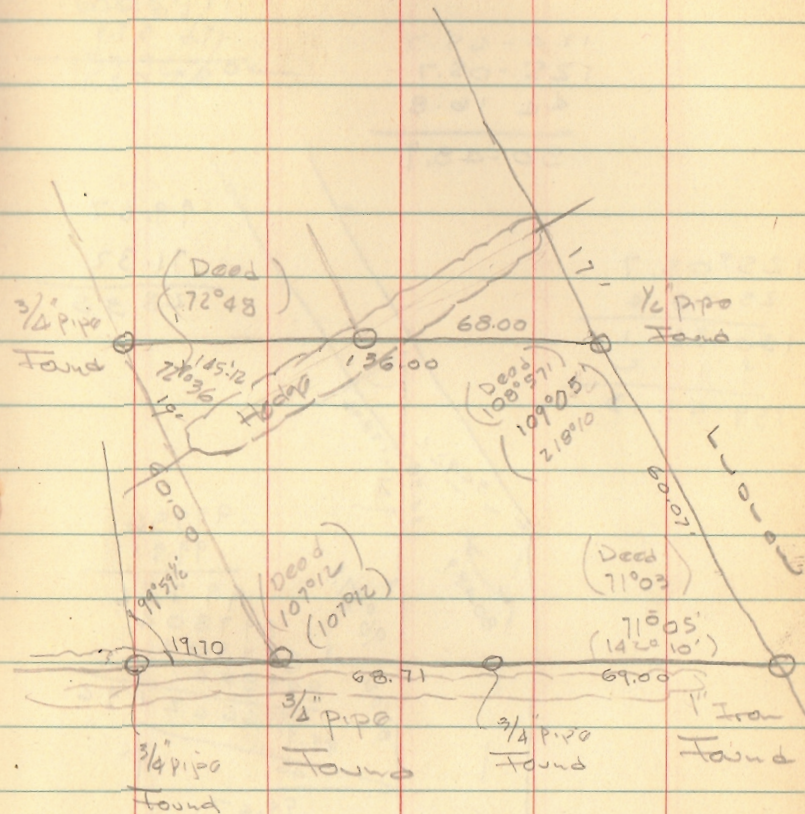 17'
(Deed
72°48)
3/4" pipe
Found
1/2" pipe
Found
68.00
136.00
72°36
145°12
Hedge
19'
(Deed
108°57')
109°05'
218°10
60.00
60.07'
(Deed
107°12
(107°12)
(Deed
71°03)
71°05'
(142°10')
99°59½
19.70
68.71
69.00
3/4" pipe
Found
3/4" pipe
Found
3/4" pipe
Found
1" Iron
Found